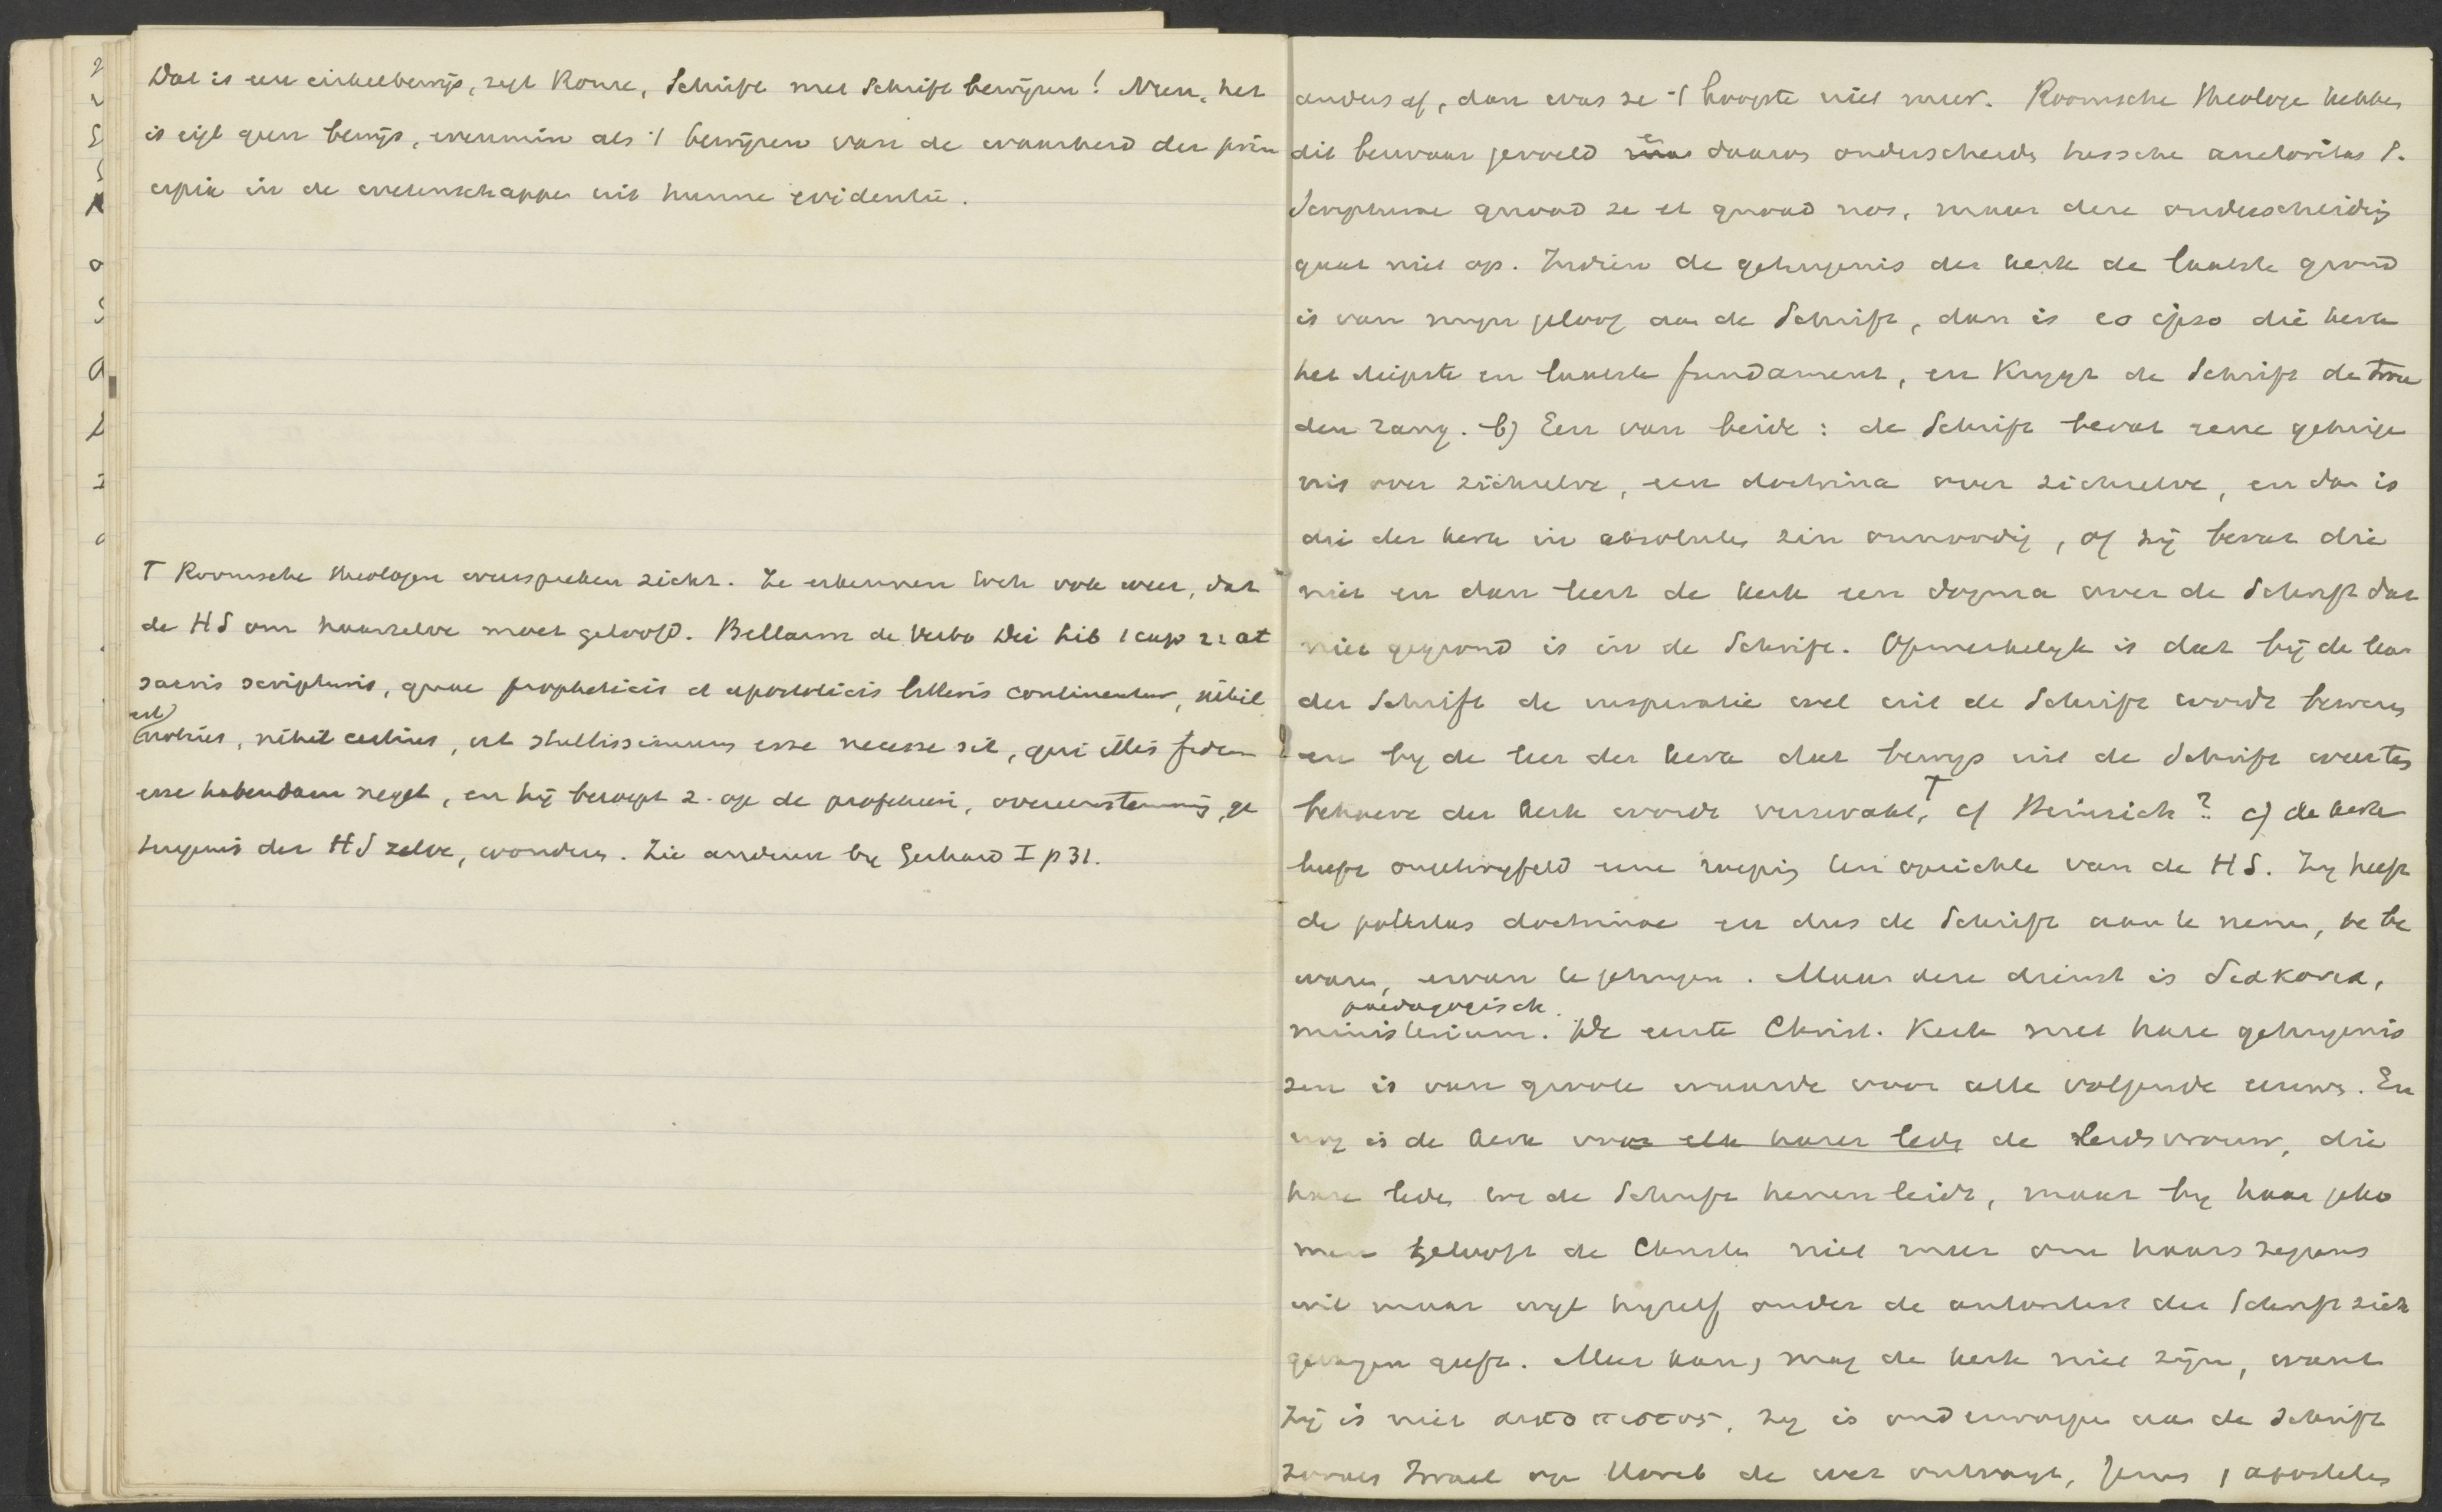 Dat is een cirkelbewijs, zegt Rome, Schrift met Schrift bewijzen! Neen, het
is eigl geen bewijs, evenmin als 't bewijzen van de waarheid der prin
cipia in de wetenschappen uit hunne evidentie.
T Roomsche theologen weerspreken zichz. Ze erkennen toch ook weer, dat
de HS om haarzelve moet geloofd. Bellarm de Verbo Dei lib 1 cap 2: at
sacris scripturis, quae propheticis et apostolicis litteris continentur, nihil
est
notius, nihil certius, ut stultissimum esse necesse sit, qui illis fidem
esse habendam neget, en hij beroept z. op de profetieën, overeenstemming, ge
tuigenis der HS zelve, wonderen. Zie anderen by Gerhard I p 31.
anders af, dan was ze 't hoogste niet meer. Roomsche theologen hebben
dit bezwaar gevoeld en daarom onderscheiden tussche auctoritas S.
Scripturae quoad se et quoad nos, maar deze onderscheiding
gaat niet op. Indien de getuigenis der kerk de laatste grond
is van myn geloof aan de Schrift, dan is eo ipso die kerk
het diepste en laatste fundament, en krygt de Schrift de twee
den rang. b) Een van beide: de Schrift bevat eene getuige
nis over zichzelve, een doctrina over zichzelve, en dan is
die der kerk in absoluten zin onnoodig, of zij bevat die
niet en dan leert de kerk een dogma over de Schrift dat
niet gegrond is in de Schrift. Opmerkelyk is dat bij de leer
der Schrift de inspiratie wel uit de Schrift wordt bewezen
en by de leer der kerk dat bewys uit de Schrift weer ten
behoeve der kerk wordt verzwakt, T cf Heinrich? c) de kerk
heeft ontwyfeld eene roeping ten opzichte van de HS. Zy heeft
de potestas doctrinae en dus de Schrift aan te nemen, te be
waren, ervan te getuigen. Maar deze dienst is διακονια,
paedagogisch.
ministerium. De eerste Christ. Kerk met hare getuigenis
sen is van groote waarde voor alle volgende eeuwen. En
nog is de kerk voor elk harer leden de leidsvrouw, die
hare leden tot de Schrift henen leidt, maar by haar geko
men gelooft de Christen niet meer om haars zeggens
wil maar wyl hyzelf onder de autoriteit der Schrift zich
gevangen geeft. Meer kan, mag de kerk niet zijn, want
zij is niet αυτοπιστος, zy is onderworpen aan de Schrift
zooals Israel op Horeb de wet ontvangt, Jezus, apostelen